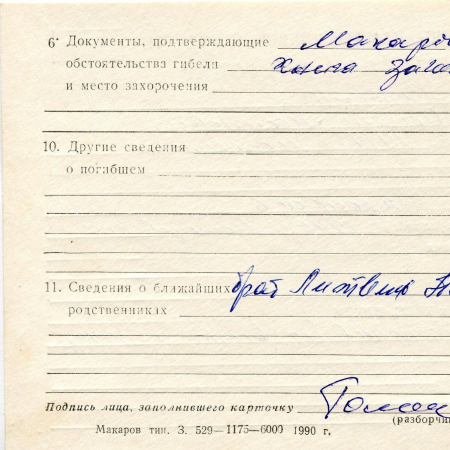 6. Документы, подтверждающие
обстоятельства гибели
и место захоронения
10. Другие сведения
о погибшем
11. Сведения о ближайших брат Литвин
родственниках
Подпись лица, заполнившего карточку
(разборчи
Макаров тип. З. 529—1175—6000 1990 г.